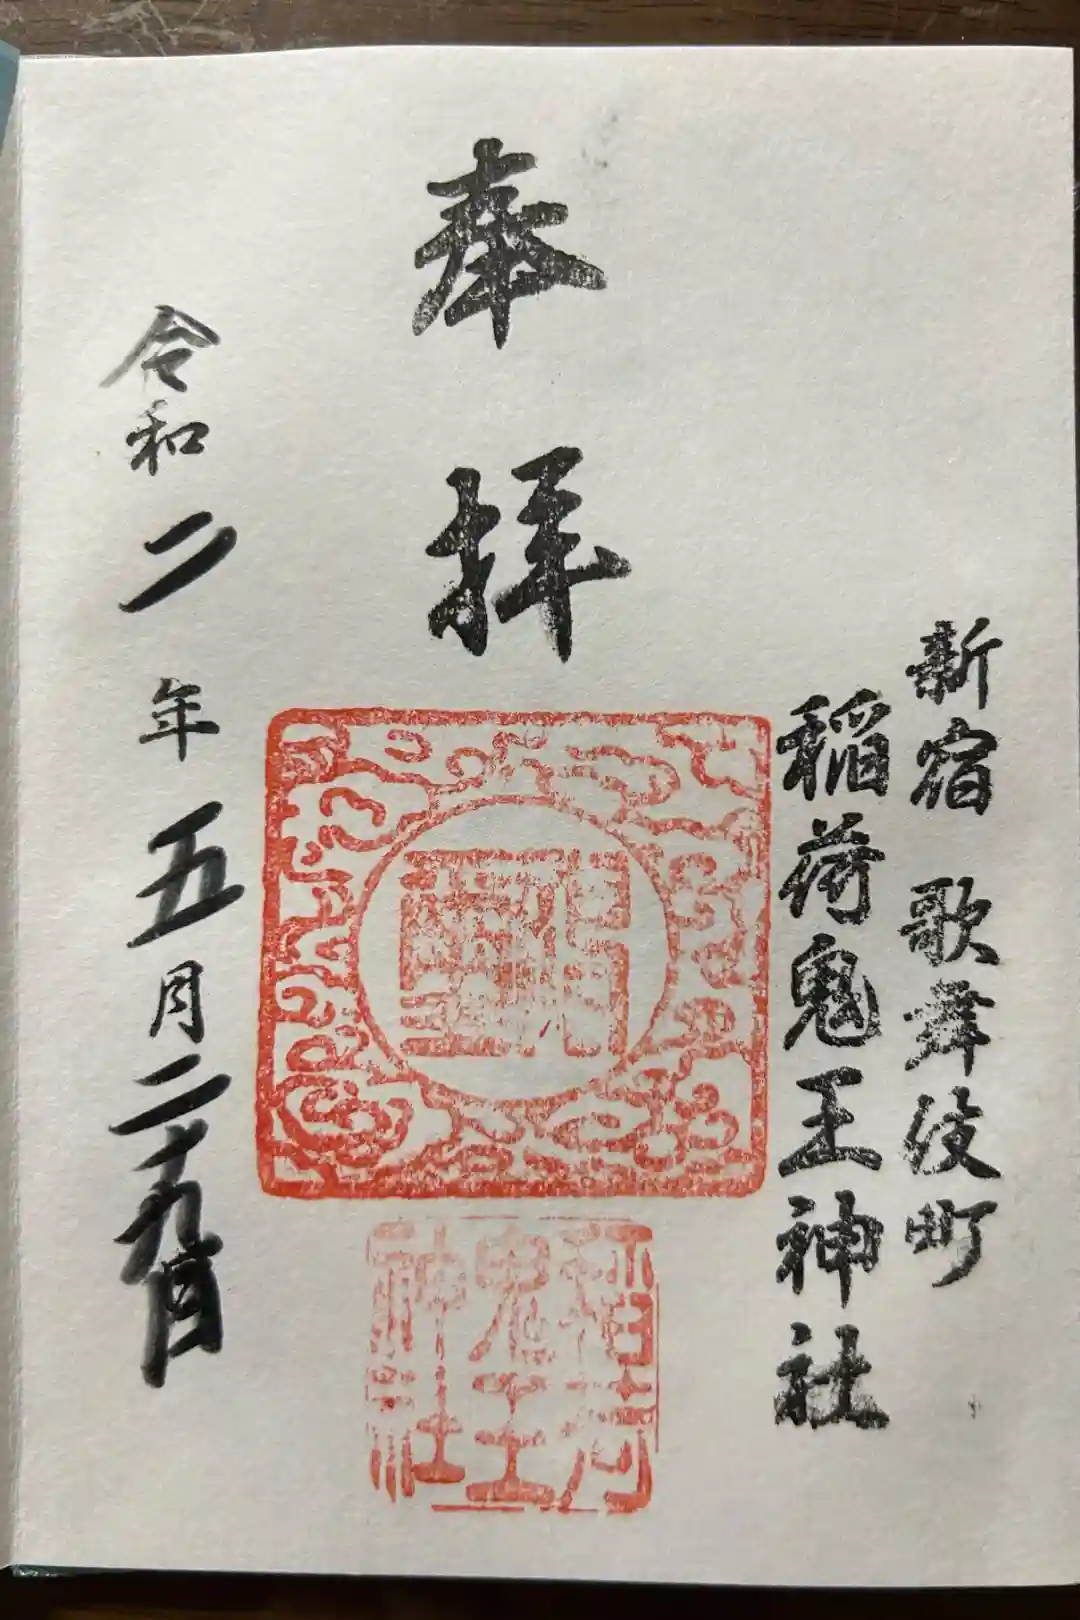 新宿 歌舞伎町
稲荷鬼王神社
奉拝
稲荷
鬼王
神社
令和二年五月二十九日